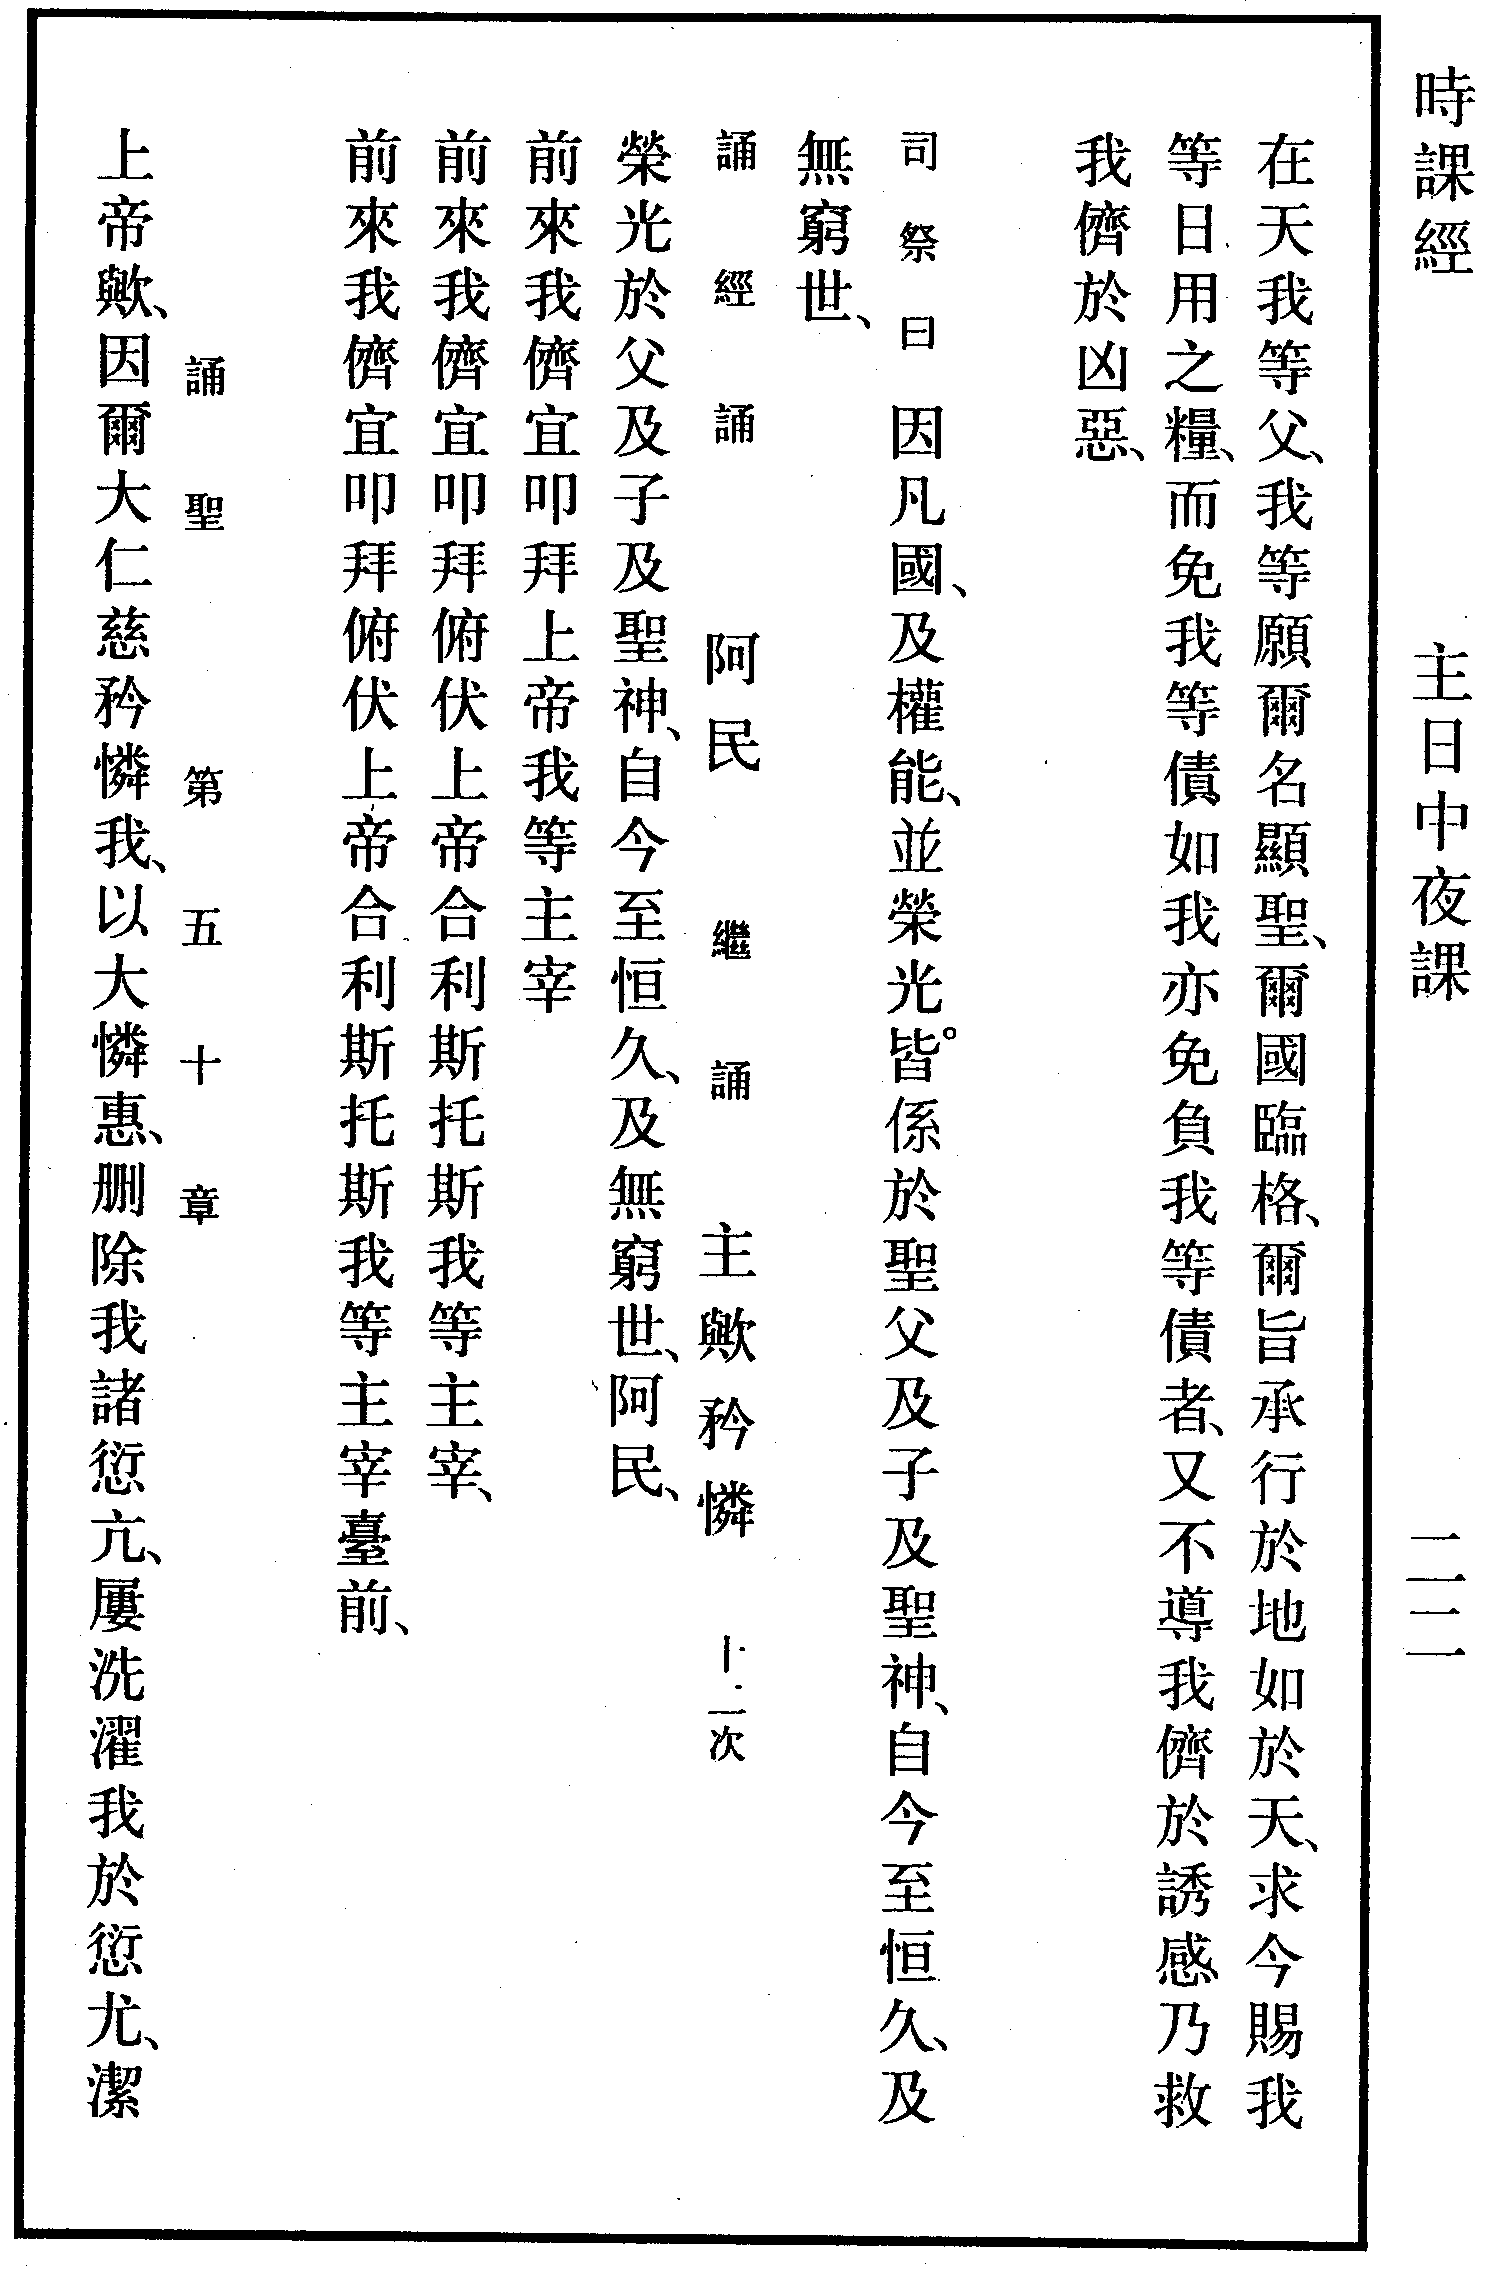 時課經 主日中夜課 二二
在天我等父、我等願爾名顯聖、爾國臨格、爾旨承行於地如於天、求今賜我
等日用之糧、而免我等債、如我亦免負我等債者、又不導我儕於誘感、乃救
我儕於凶惡、
司祭曰 因凡國、及權能、並榮光、皆係於聖父及子及聖神、自今至恒久、及
無窮世、
誦經誦 阿民 繼誦 主歟矜憐 十二次
榮光於父及子及聖神、自今至恒久、及無窮世、阿民、
前來我儕宜叩拜上帝我等主宰
前來我儕宜叩拜俯伏上帝合利斯托斯我等主宰、
前來我儕宜叩拜俯伏上帝合利斯托斯我等主宰臺前、
誦聖 第五十章
上帝歟、因爾大仁慈矜憐我、以大憐惠、删除我諸愆亢、屢洗濯我於愆尤、潔